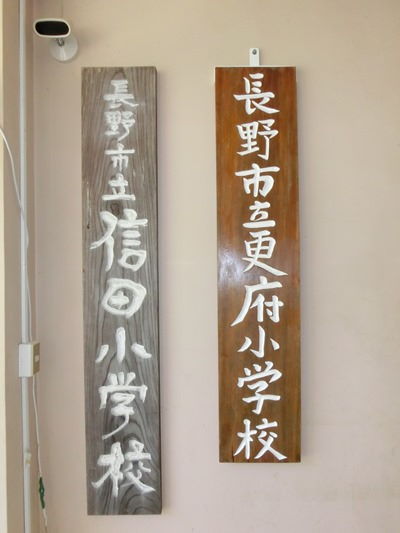 長野市立更府小学校
長野市立信田小学校